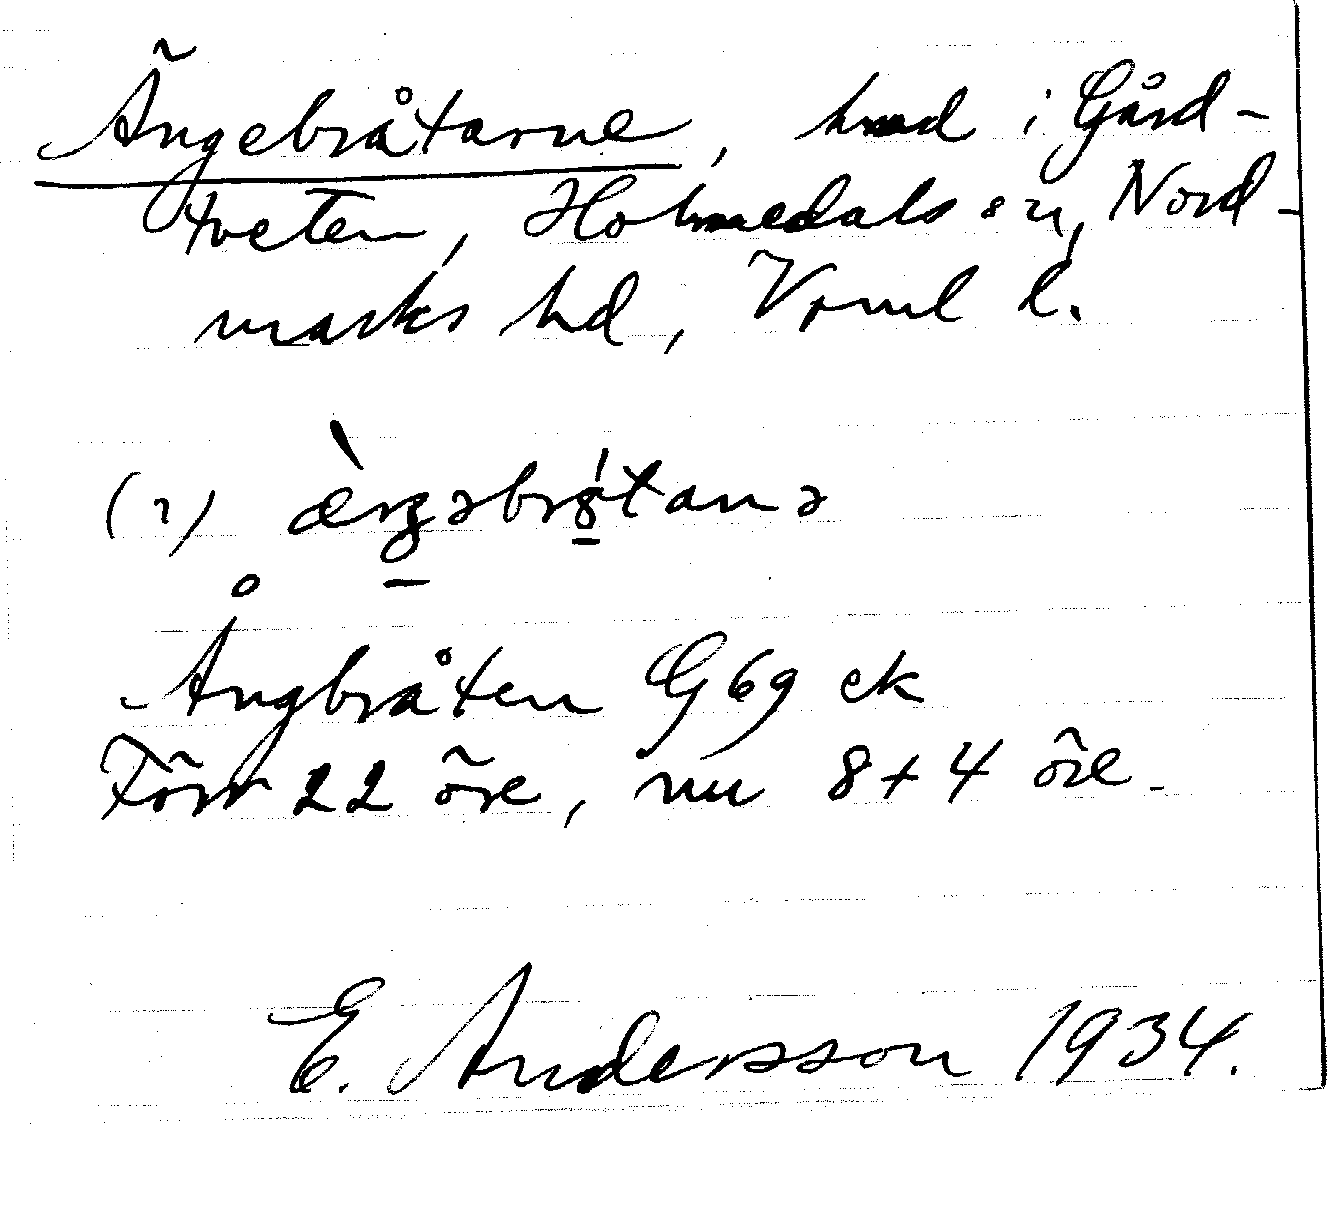 Ängebråtarne, hmd i Gård-
tveten, Holmedals sn, Nord-
marks hd, Vrml l.
(1)
Ångbråten G 69 ek
Förr 22 öre, nu 8+4 öre.
E. Andersson 1934.